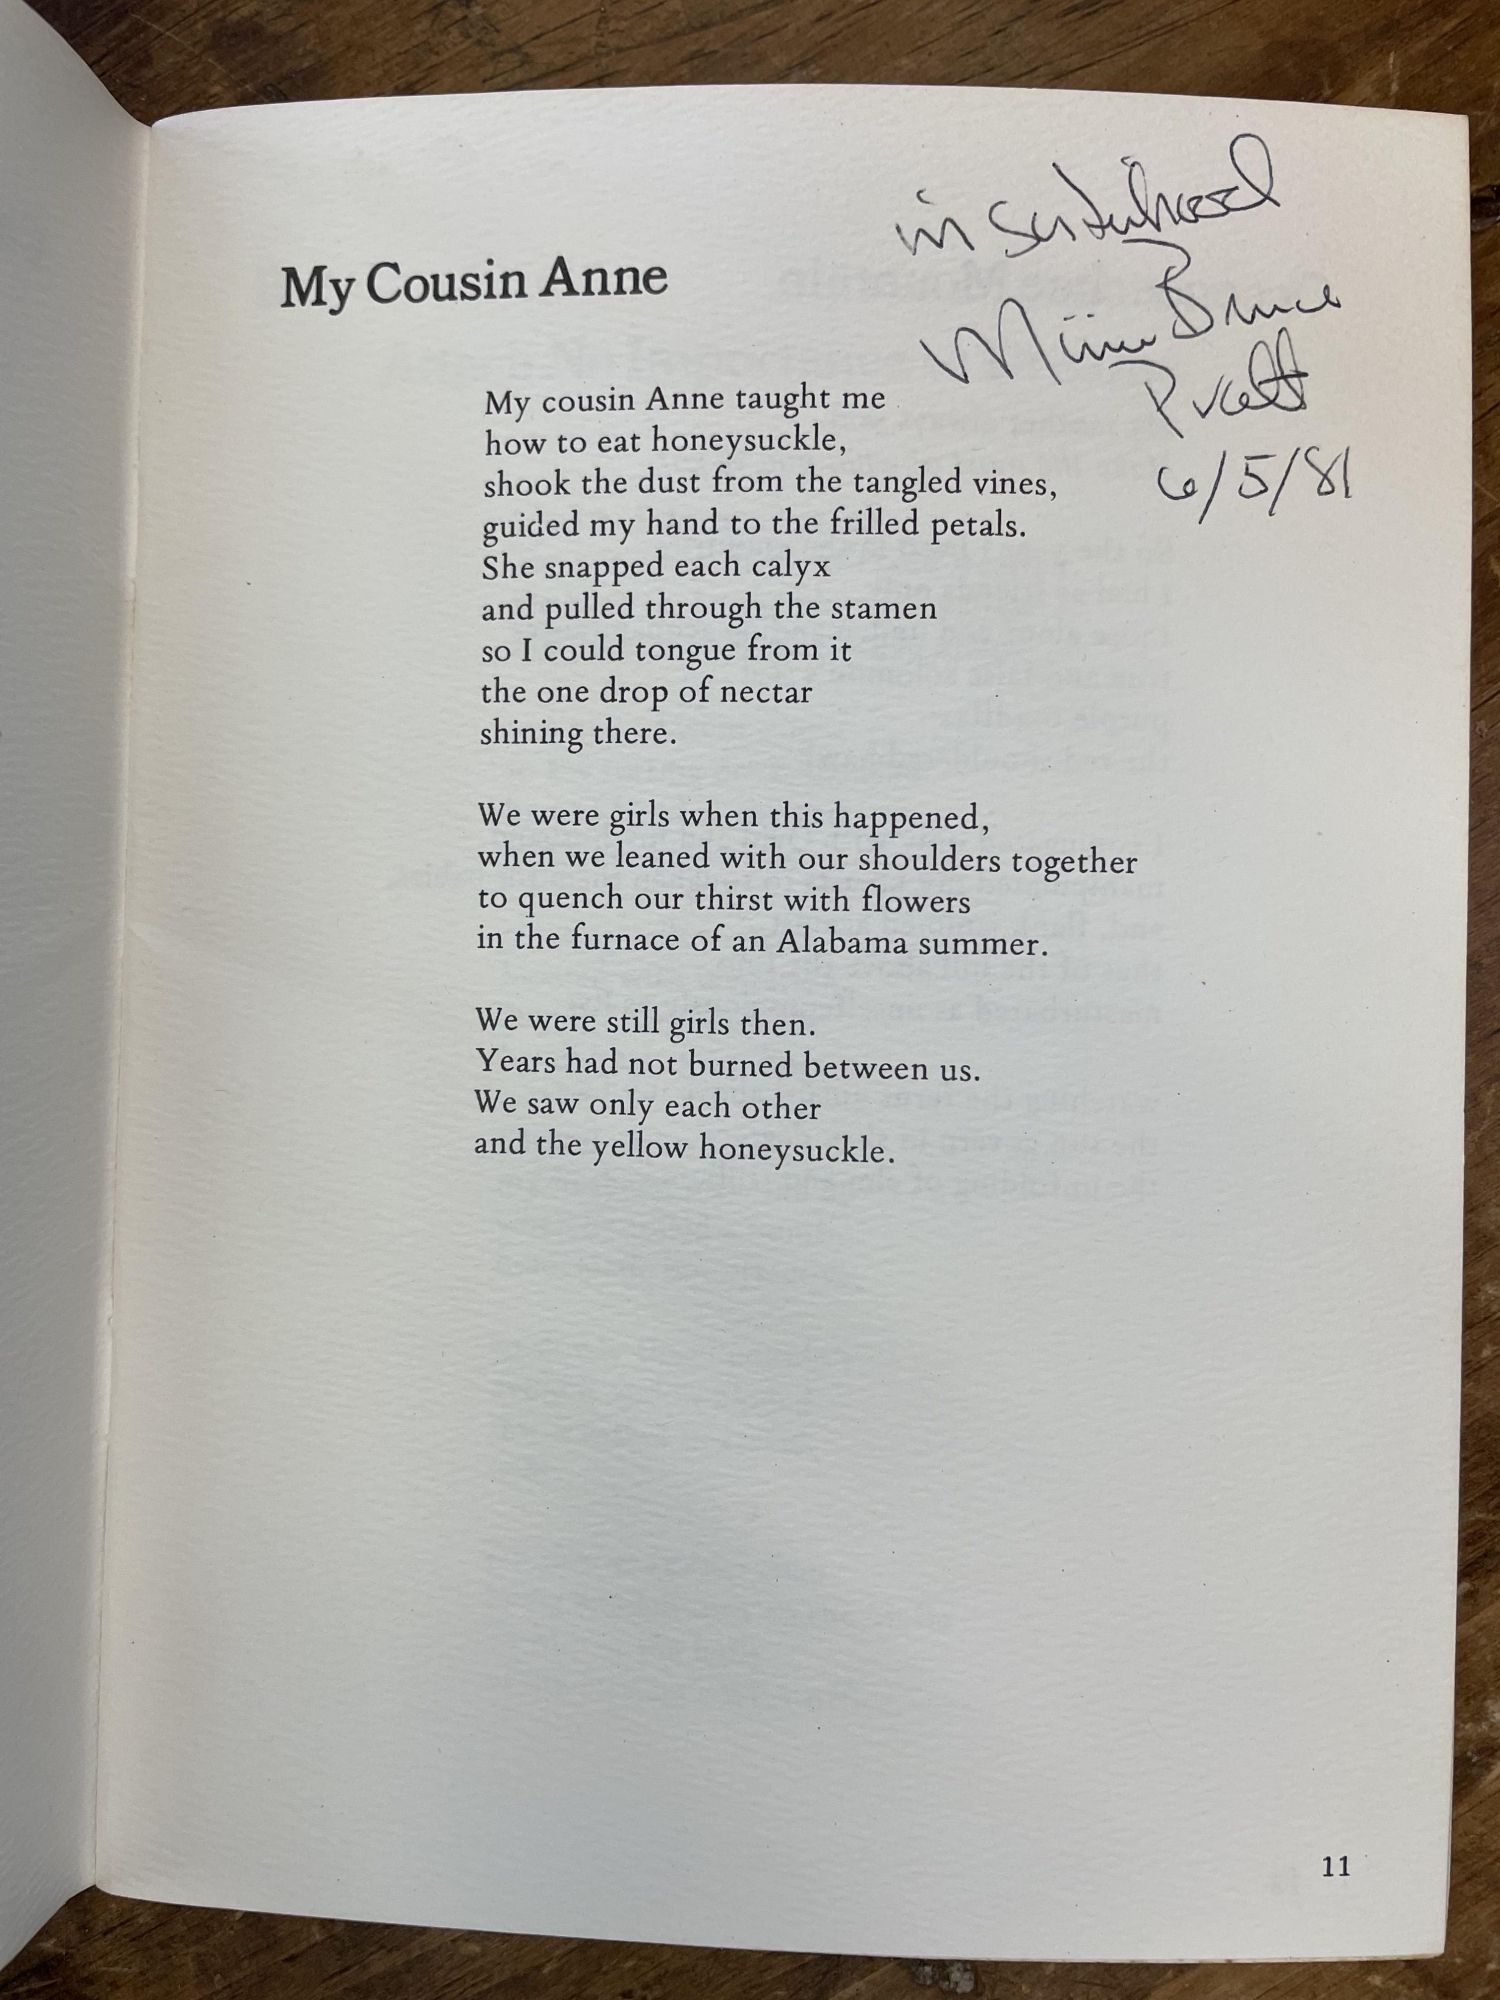 in Sisterhood
Minnie Bruce
Pratt
6/5/81
My Cousin Anne
My cousin Anne taught me
how to eat honeysuckle,
shook the dust from the tangled vines,
guided my hand to the frilled petals.
She snapped each calyx
and pulled through the stamen
so I could tongue from it
the one drop of nectar
shining there.
We were girls when this happened,
when we leaned with our shoulders together
to quench our thirst with flowers
in the furnace of an Alabama summer.
We were still girls then.
Years had not burned between us.
We saw only each other
and the yellow honeysuckle.
11